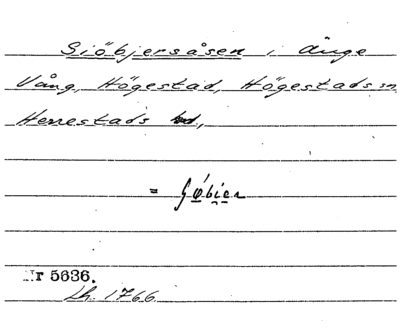 Siöbjersåsen i Änge
Vång, Högestad, Högestads sn
Herrestads hd,
= Sǿbier
Nr 5636.
Lh. 1766